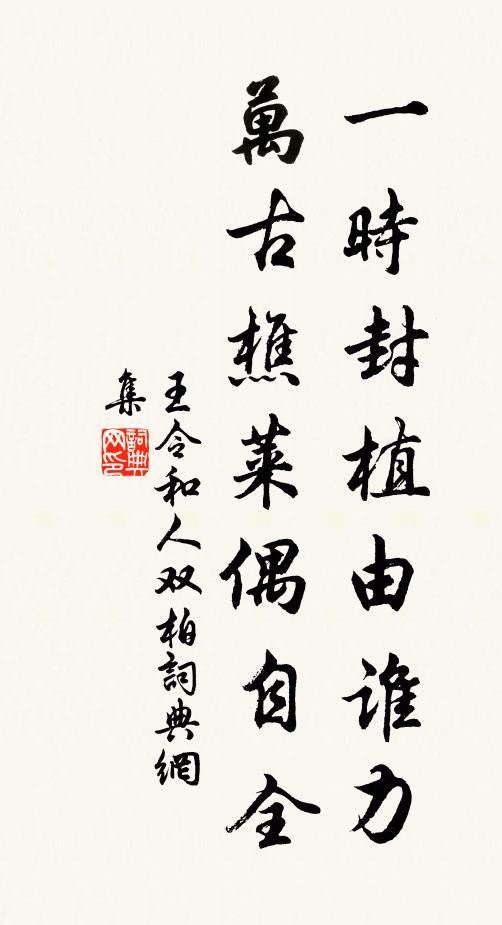 一時封植由誰力
萬古樵菜偶自全
王令和人双柏詞典網
集
詞典网印